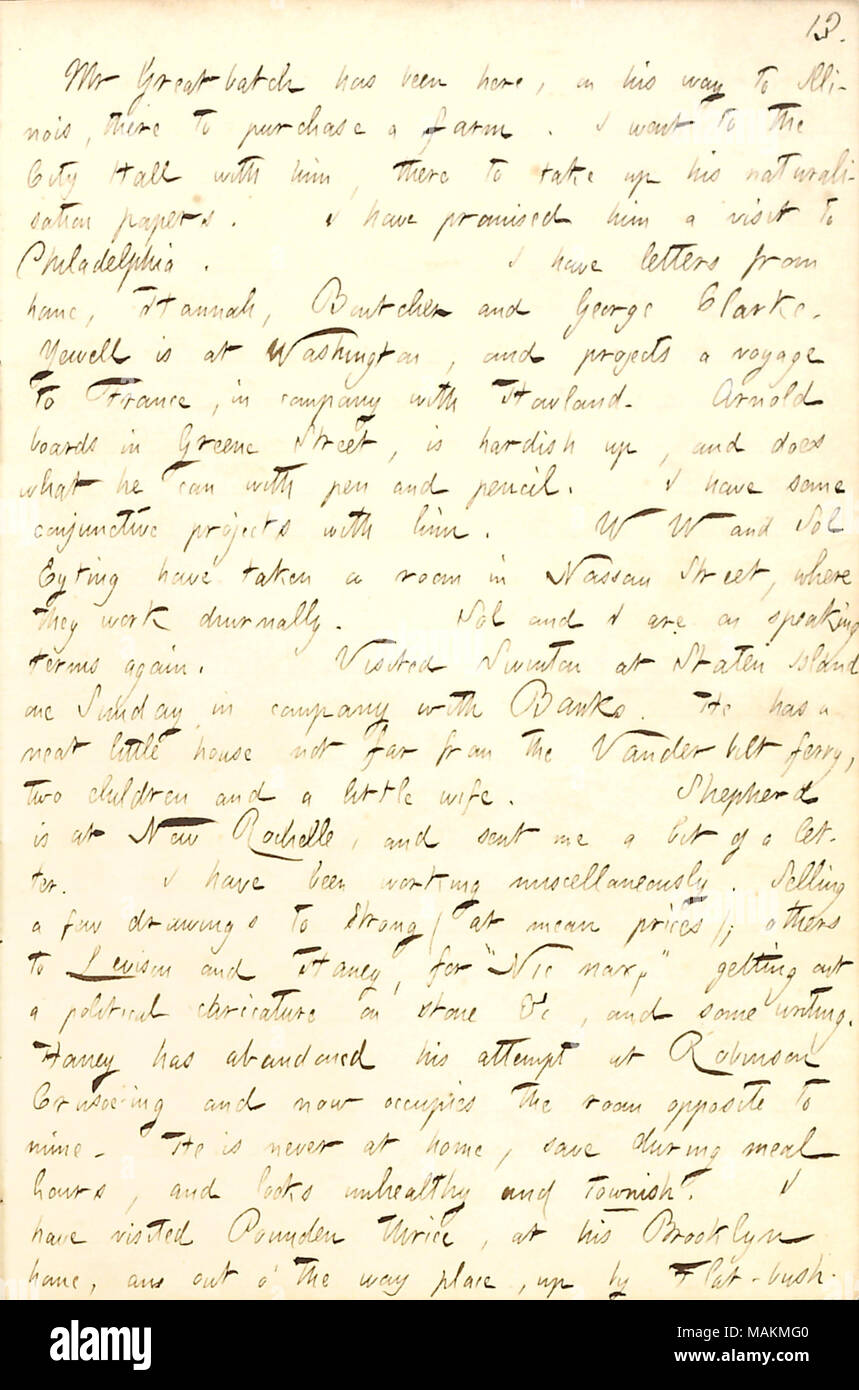 13.
Mr Greatbatch has been here, on his way to Illi-
nois, there to purchase a farm. I went to the
City Hall with him, there to take up his naturali-
sation papers. I have promised him a visit to
Philadelphia. I have letters from
home, Hannah, Boutcher and George Clarke.
Yewell is at Washington, and projects a voyage
to France, in company with Howland. Arnold
boards in Greene Street, is hardish up, and does
what he can with pen and pencil. I have some
conjunctive projects with him. W W and Sol
Eyting have taken a room in Nassau Street, where
they work diurnally. Sol and I are on speaking
terms again. Visited Swinton at Staten Island
one Sunday in company with Banks. He has a
neat little house not far from the Vanderbilt ferry,
two children and a little wife. Shepherd
is at New Rochelle, and sent me a bit of a let-
ter. I have been working miscellaneously. Selling
a few drawings to Strong (at mean prices); others
to Levison and Haney, for "Nic nax," getting out
a political caricature on stone &c, and some writing.
Haney has abandoned his attempt at Robinson
Crusoe-ing and now occupies the room opposite to
mine. He is never at home, save during meal
hours, and looks unhealthy and townish. I
have visited Pounden thrice, at his Brooklyn
home, an out o' the way place, up by Flat-bush.
alamy
Image ID: MAKMG0
www.alamy.com